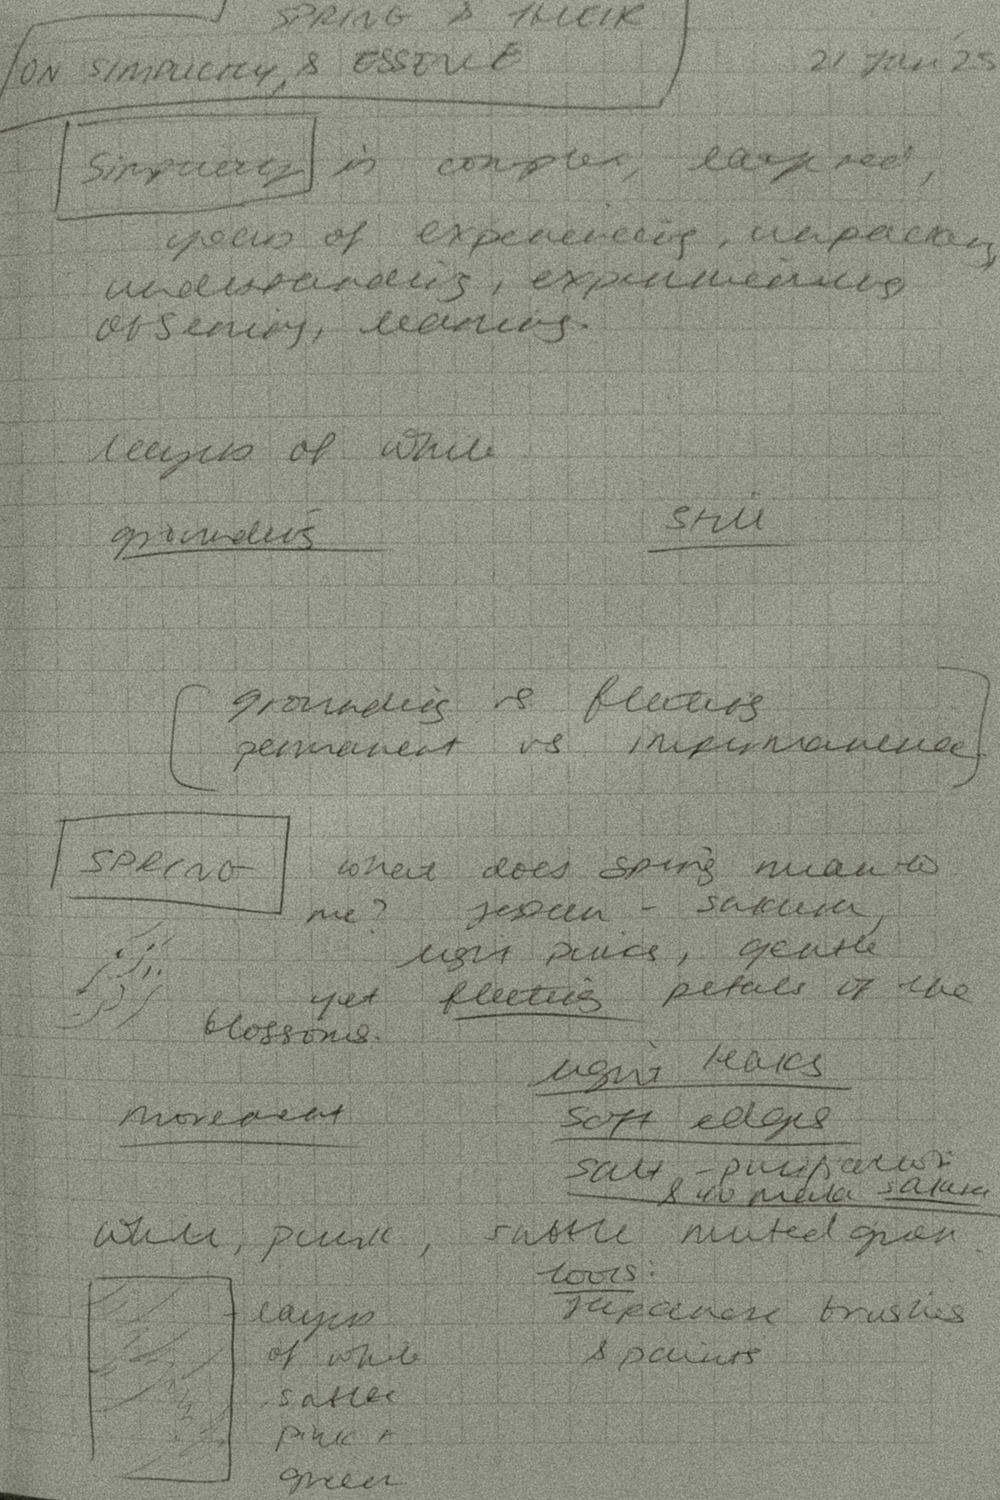 SPRING & THEIR
ON SIMPLICITY & ESSENCE
21 Jan '25
Simplicity is complex, layered,
years of experiencing, unpacking,
understanding, experimenting
observing, learning.
layers of white
grounding
still
grounding vs fleeting
permanent vs impermanence
SPRING
what does spring mean to
me? Japan - sakura,
light pinks, gentle
yet fleeting petals of the
blossoms.
light leaks
movement
soft edges
salt - purification
& to make sakura
white, pink, subtle muted green
tools:
layers
of white
subtle
pink +
green
Japanese brushes
& paints